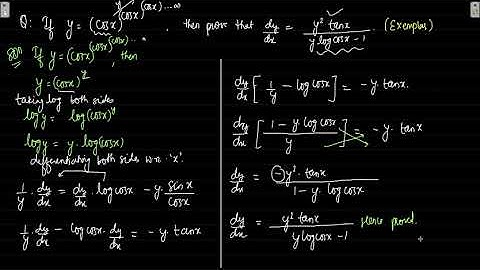 Q: If y = (cosx)^(cosx)^(cosx)....∞, then prove that dy/dx = y² tanx / (y logcosx - 1) (Exemplar)
Solⁿ If y = (cosx)^(cosx)^(cosx)..., then
y = (cosx)^y
taking log both sides
log y = log(cosx)^y
log y = y . log(cosx)
differentiating both sides w.r.t 'x'.
1/y . dy/dx = dy/dx . logcosx - y . sinx/cosx
1/y . dy/dx - logcosx . dy/dx = - y . tanx
dy/dx [ 1/y - logcosx ] = - y . tanx.
dy/dx [ (1 - y logcosx) / y ] = - y . tanx
dy/dx = - y² . tanx / (1 - y . logcosx)
dy/dx = y² tanx / (y logcosx - 1) Hence proved.